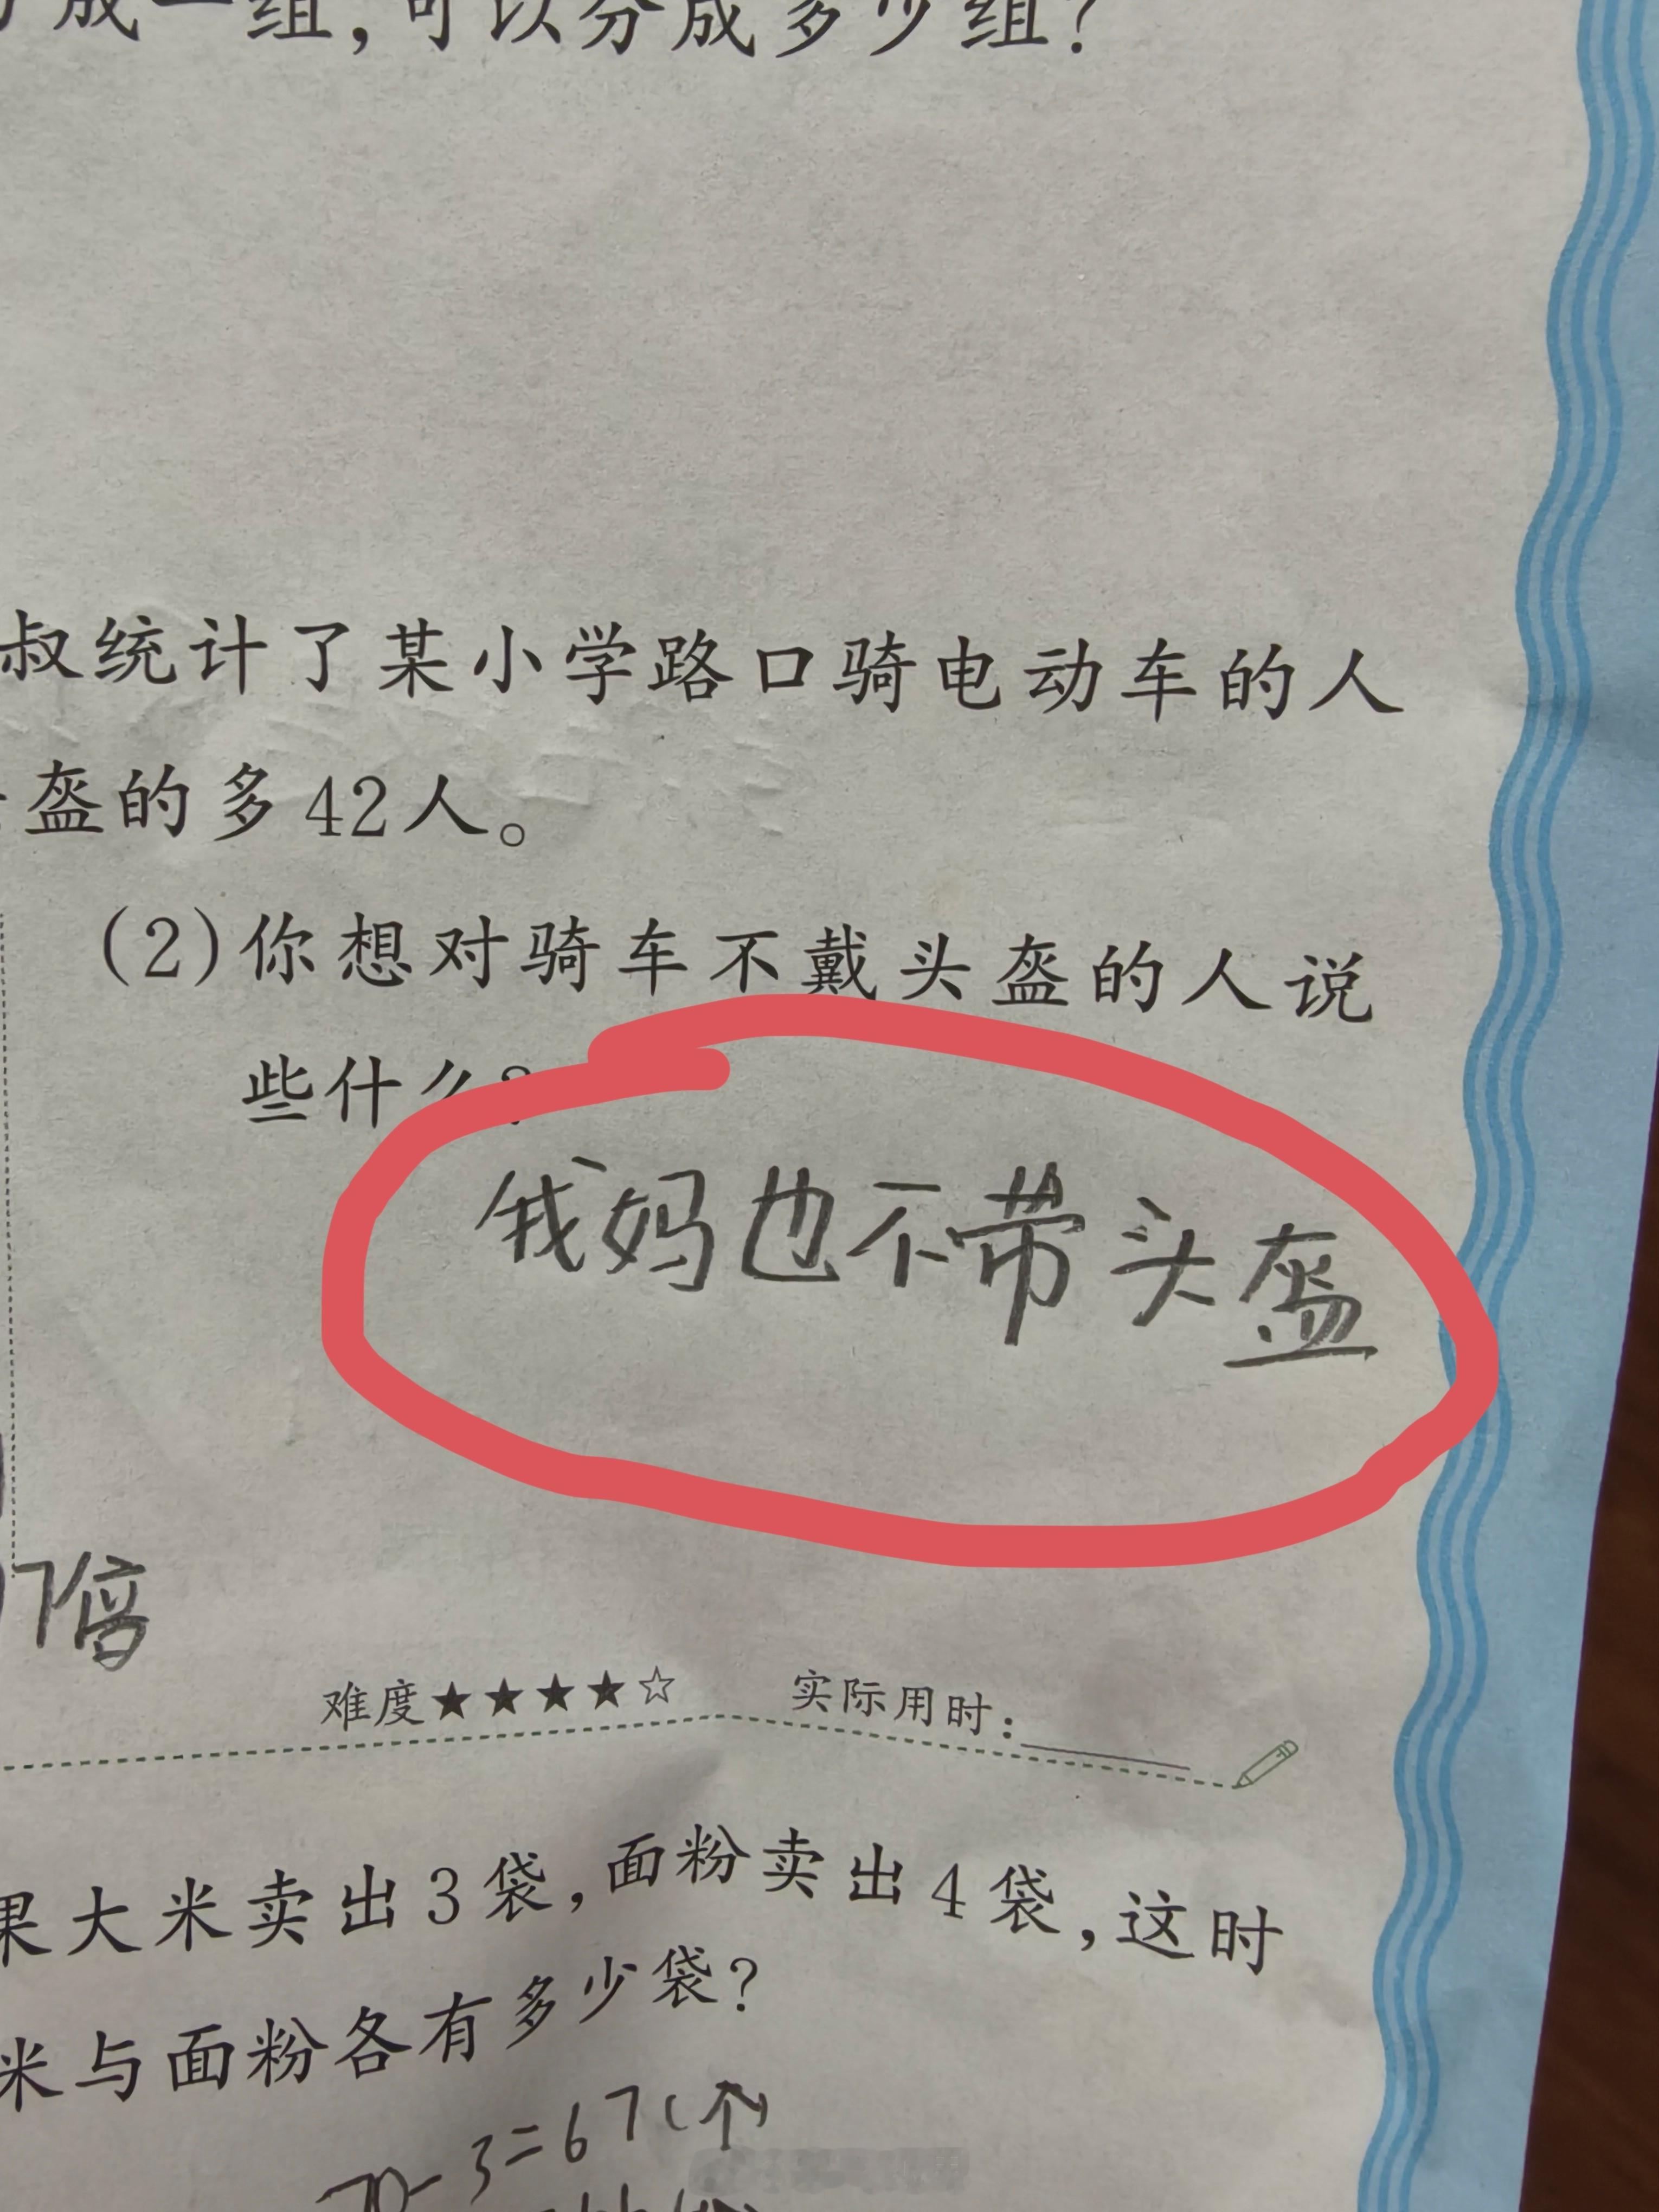 成一组,可以分成多少组?
叔统计了某小学路口骑电动车的人
盔的多42人。
(2)你想对骑车不戴头盔的人说
些什么?
我妈也不带头盔
7倍
难度★★★★☆ 实际用时:
果大米卖出3袋,面粉卖出4袋,这时
米与面粉各有多少袋?
70-3=67(个)